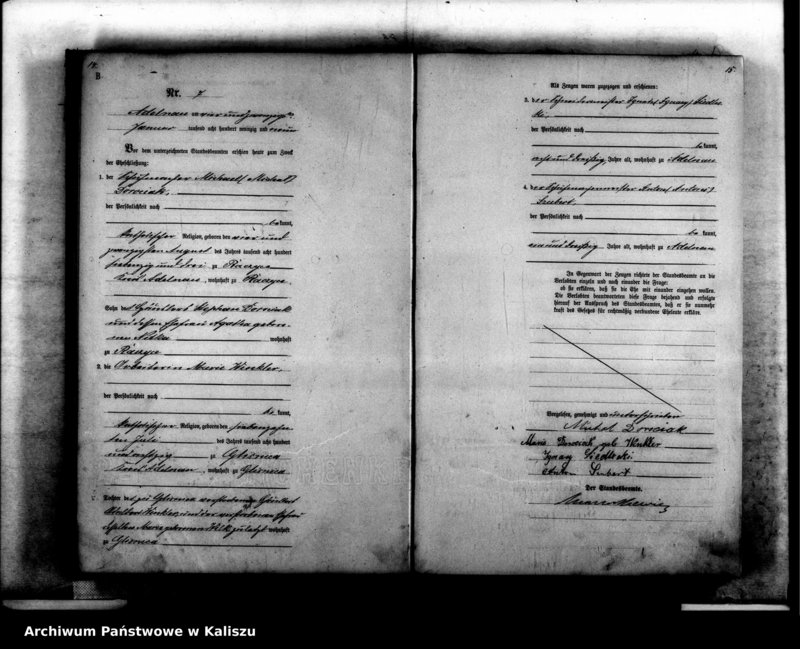 14.
B
Nr. 7
Adelnau, am vier und zwanzigsten
Januar tausend acht hundert neunzig und neun
Vor dem unterzeichneten Standesbeamten erschien heute zum Zweck
der Eheschließung:
1. der
Michael
Dorociak,
der Persönlichkeit nach
bekannt,
katholischer Religion, geboren den vier und
zwanzigsten August des Jahres tausend acht hundert
siebenzig und drei zu
Kreis Adelnau, wohnhaft zu
Sohn des Häuslers Stephan Dorociak
und dessen Ehefrau
wohnhaft
zu
2. die Arbeiterin Marie Winkler,
der Persönlichkeit nach
bekannt,
katholischer Religion, geboren den siebenzehn
ten Juli des Jahres tausend acht hundert
und achtzig zu Glisnica
Kreis Adelnau, wohnhaft zu Glisnica
Tochter des zu Glisnica verstorbenen
Winkler, und der verstorbenen
geborenen zuletzt wohnhaft
zu Glisnica
15
Als Zeugen waren zugezogen und erschienen:
3. der Schneidermeister Ignatz (Ignacy) Siedlec
ki,
der Persönlichkeit nach
bekannt,
acht und dreißig Jahre alt, wohnhaft zu Adelnau
4. der Anton (Antoni)
Seubert,
der Persönlichkeit nach
bekannt,
ein und dreißig Jahre alt, wohnhaft zu Adelnau
In Gegenwart der Zeugen richtete der Standesbeamte an die
Verlobten einzeln und nach einander die Frage:
ob sie erklären, daß sie die Ehe mit einander eingehen wollen.
Die Verlobten beantworteten diese Frage bejahend und erfolgte
hierauf der Ausspruch des Standesbeamten, daß er sie nunmehr
kraft des Gesetzes für rechtmäßig verbundene Eheleute erkläre.
Vorgelesen, genehmigt und unterschrieben
Michał Dorociak
Maria Dorociak geb. Winkler
Ignacy Siedlecki
Anton Seubert
Der Standesbeamte.
Archiwum Państwowe w Kaliszu